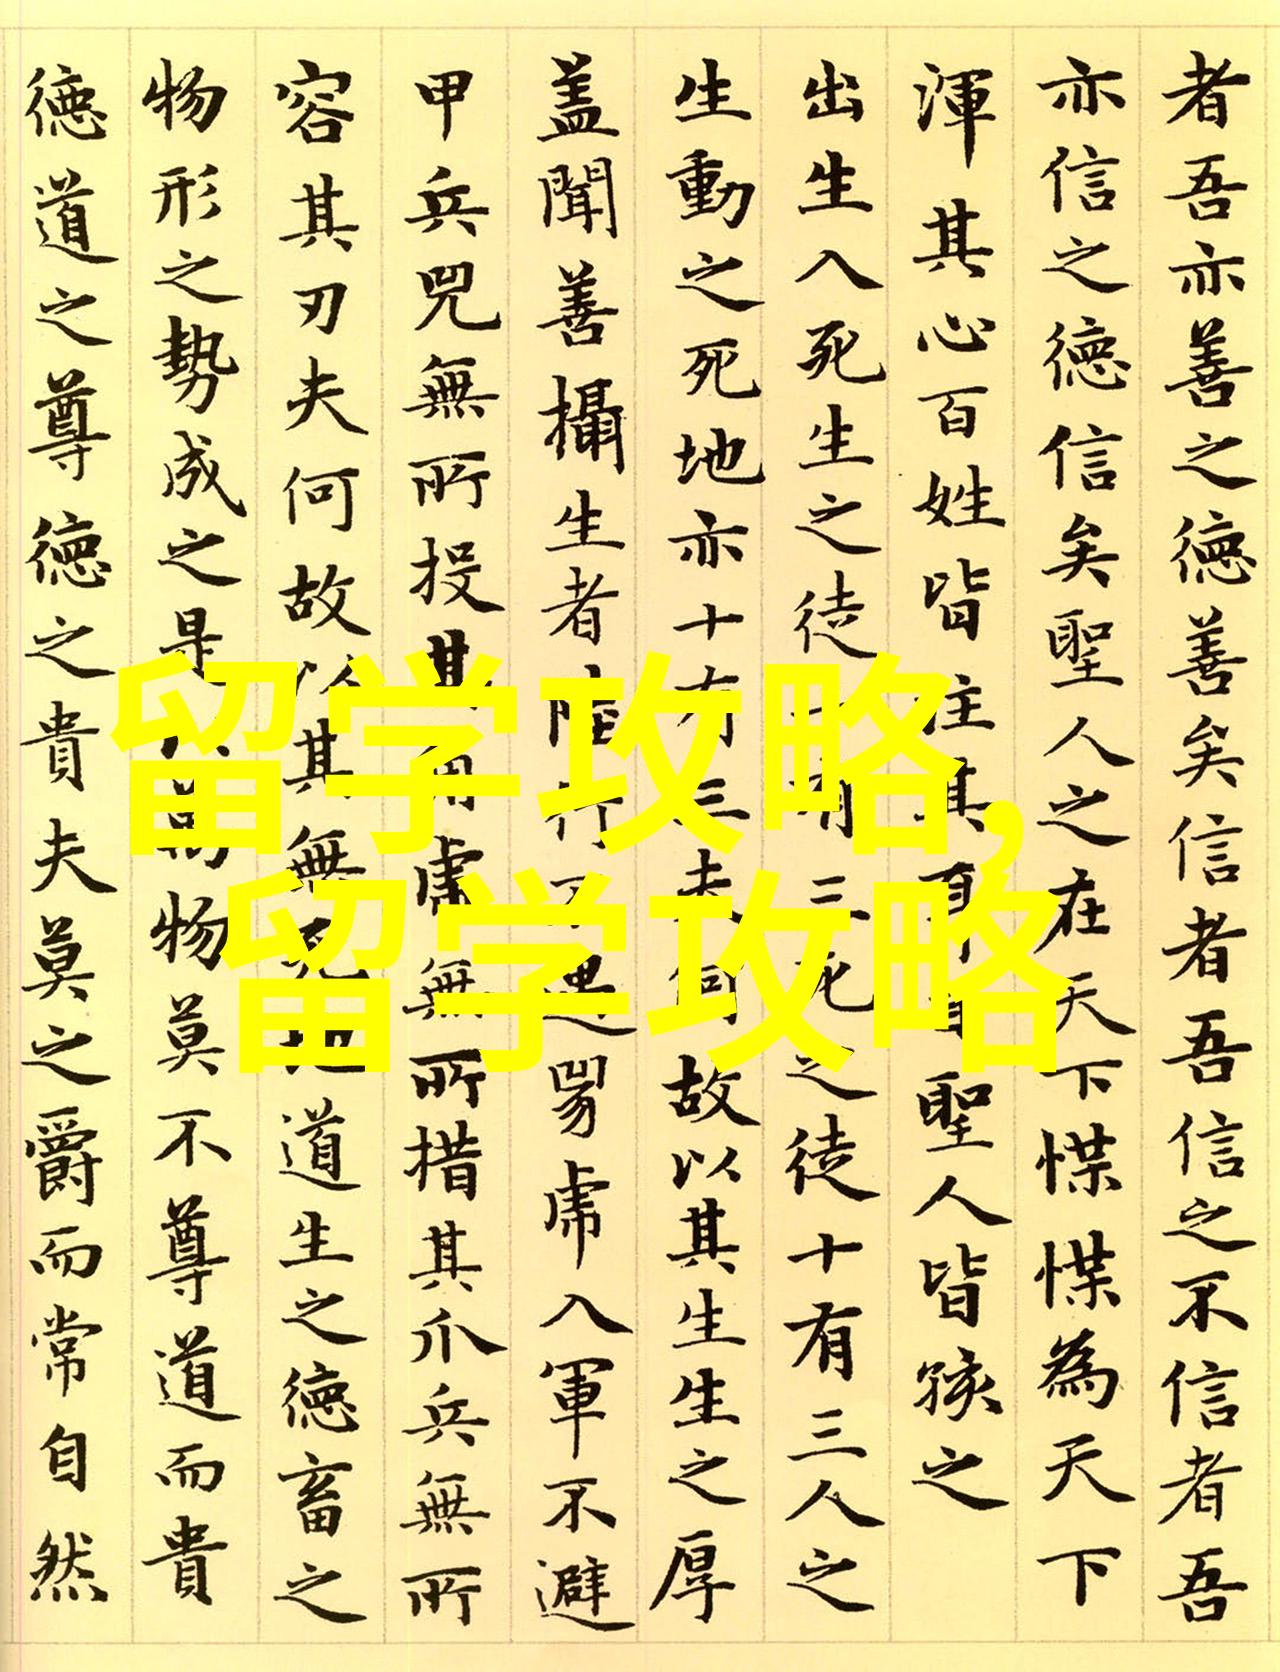 者吾亦善之德善矣信者吾信之不信者吾
亦信之德信矣聖人之在天下惵惵為天下
渾其心百姓皆注其耳目聖人皆孩之
出生入死生之徒十有三死之徒十有三人之
生動之死地亦十有三夫何故以其生生之厚
蓋聞善攝生者陸行不遇兕虎入軍不避
甲兵兕無所投其角虎無所措其爪兵無所
容其刃夫何故以其無死地道生之德畜之
物形之勢成之是以萬物莫不尊道而貴
德道之尊德之貴夫莫之爵而常自然
留学攻略,
留学攻略